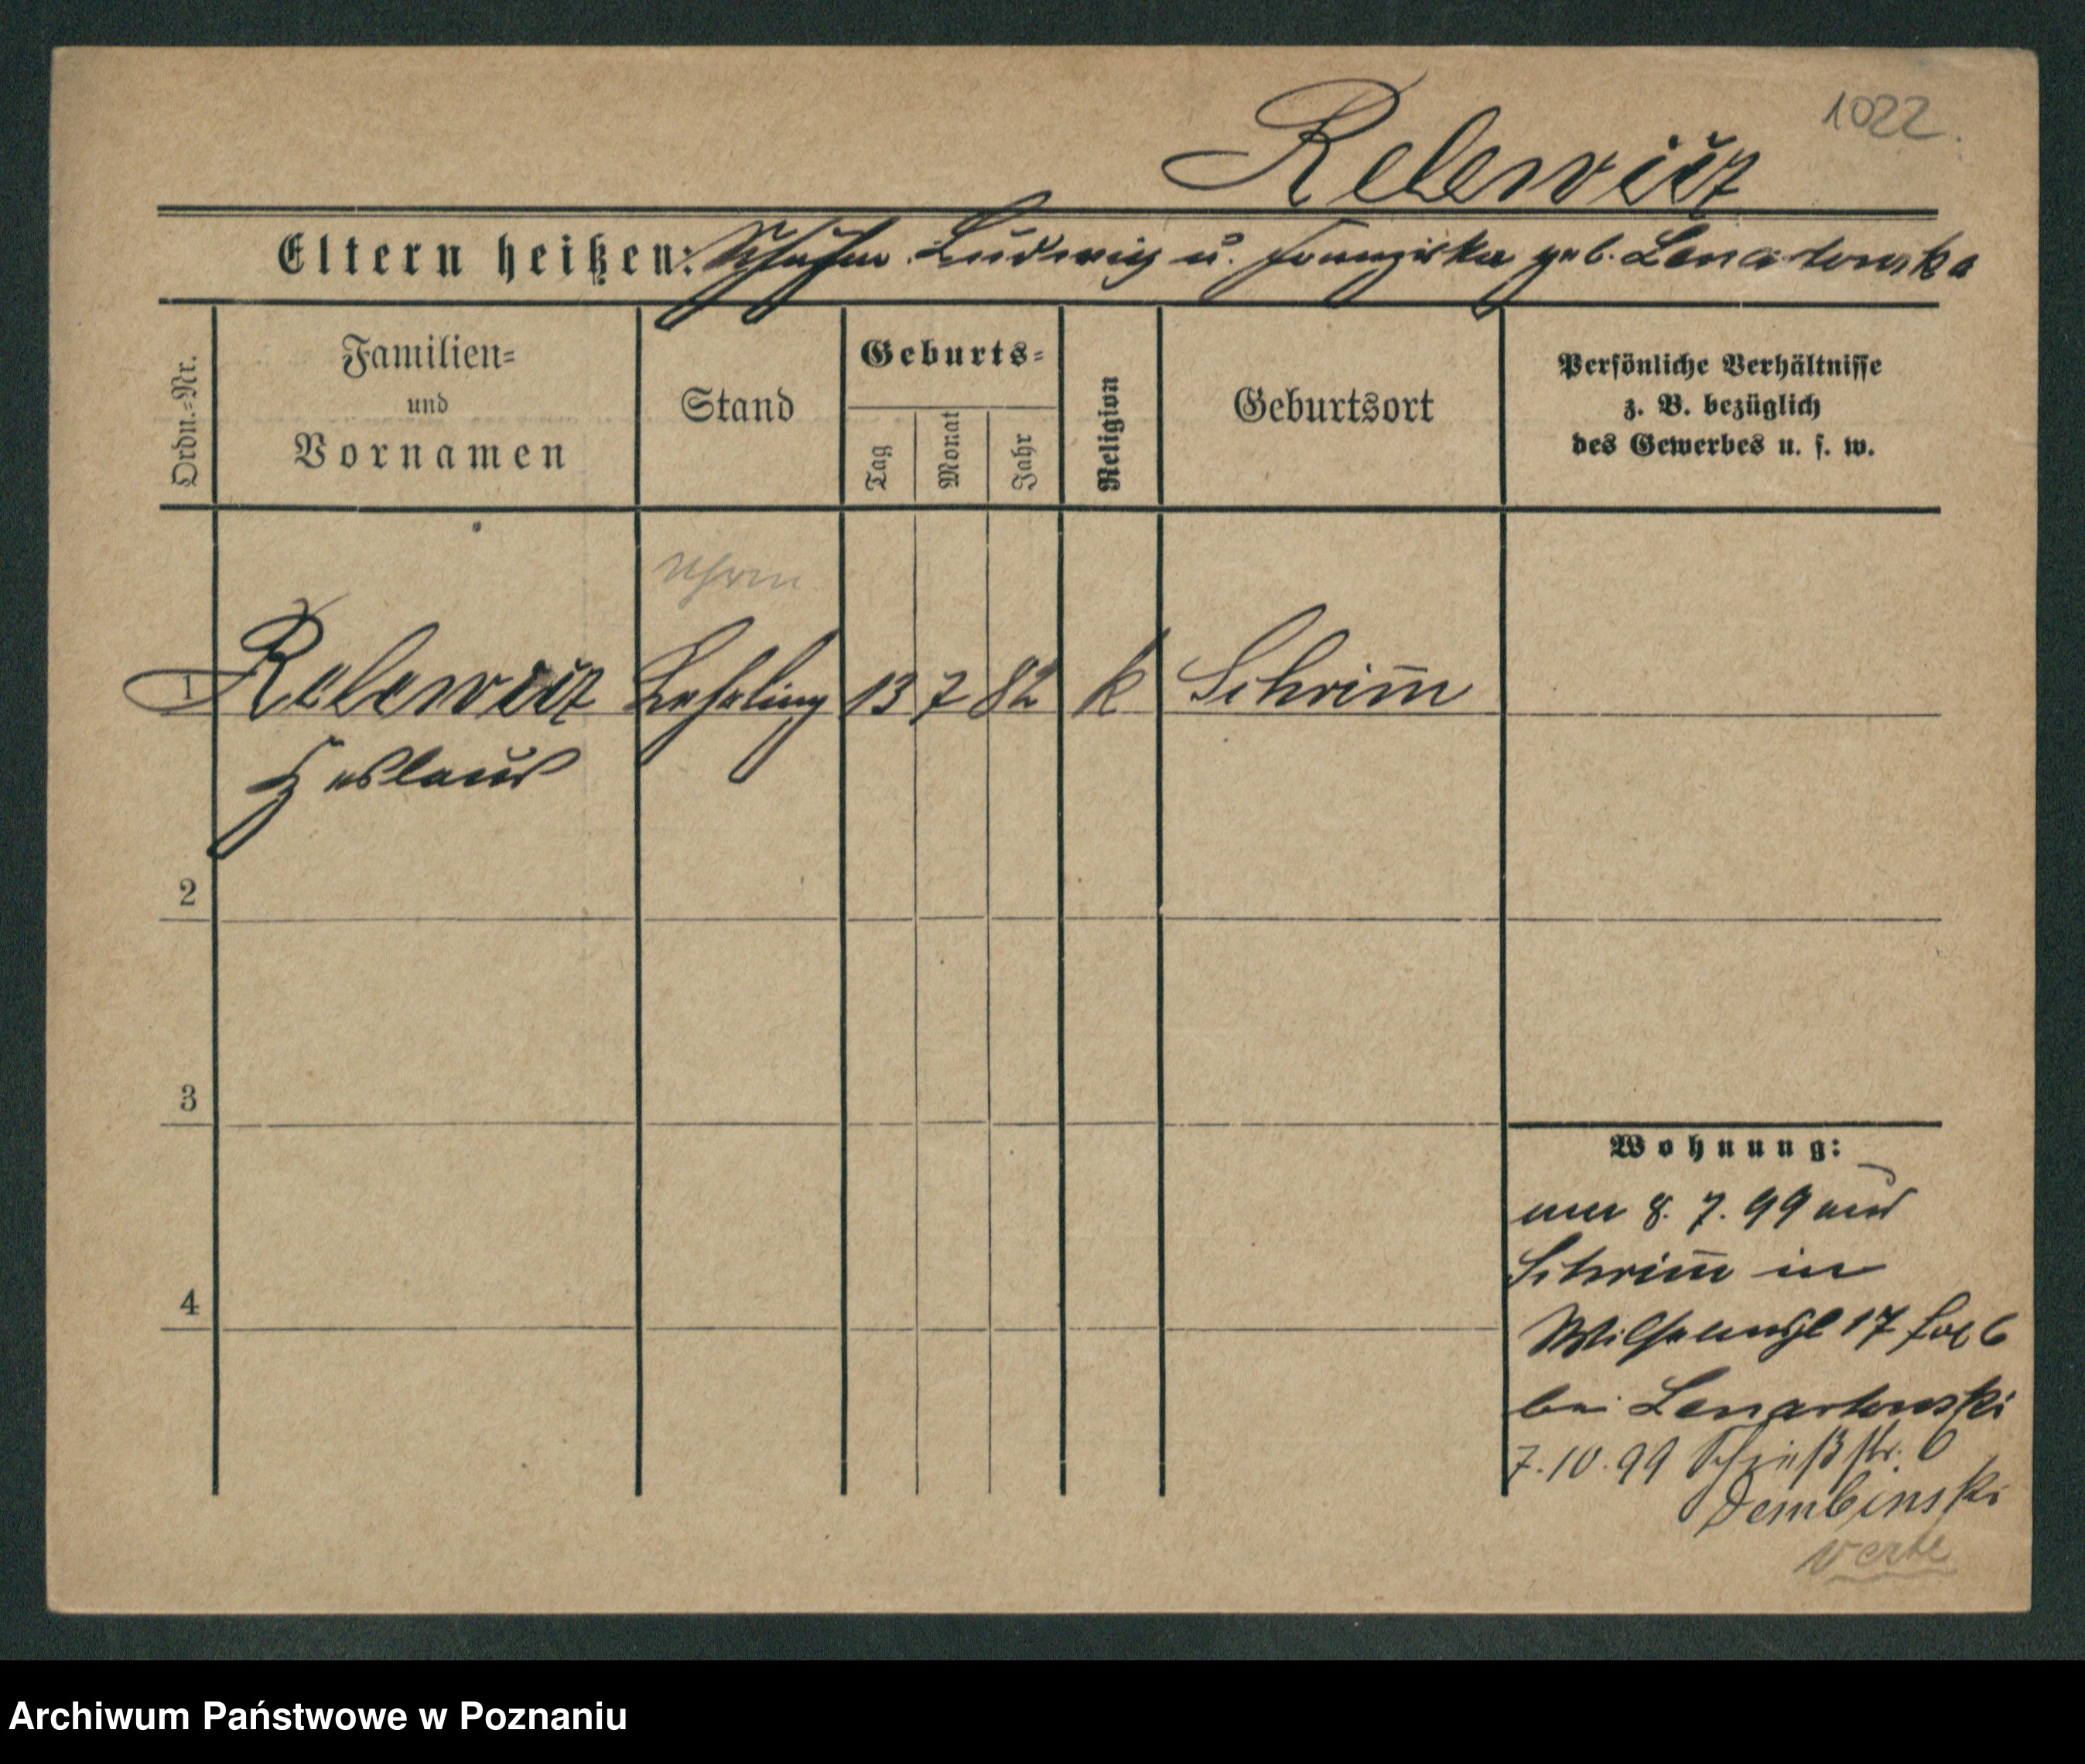 1022
Relewicz
Eltern heißen: Schuhm. Ludwig u. Franziska geb. Lenartowska
Ordn.=Nr.
Familien=
und
Vornamen
Stand
Geburts=
Tag
Monat
Jahr
Religion
Geburtsort
Persönliche Verhältnisse
z. B. bezüglich
des Gewerbes u. s. w.
1 Relewicz Lehrling 13 7 82 k Schrim̄
Zeslaus
2
3
4
Wohnung:
8. 7. 99 aus
Schrim̄ in
17
bei Lenartowski
7.10.99 Schießstr. 6
Dembinski
verte
Archiwum Państwowe w Poznaniu